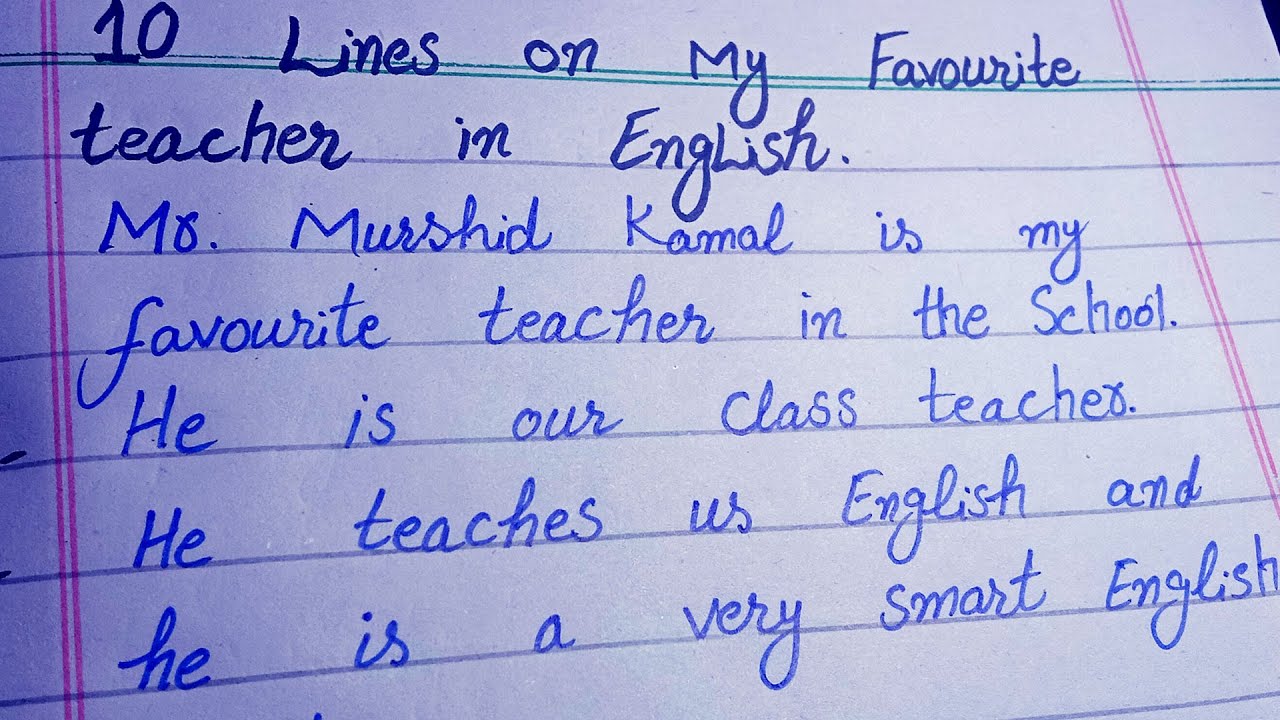 10 Lines on My Favourite
teacher in English.
Mr. Murshid Kamal is my
favourite teacher in the School.
He is our Class teacher.
He teaches us English and
he is a very smart English